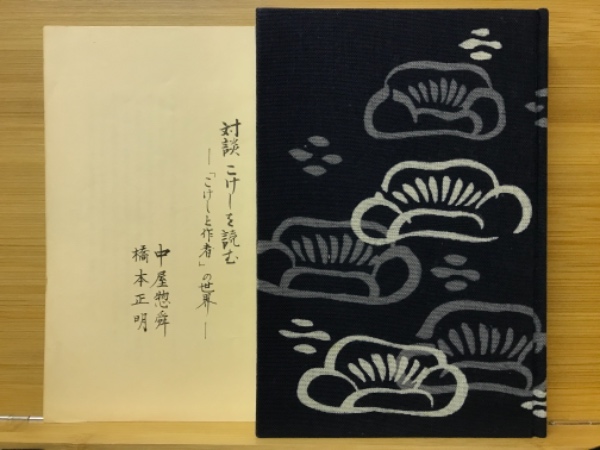 対談 こけしを読む
―「こけしと作者」の世界―
中屋惣舜
橋本正明